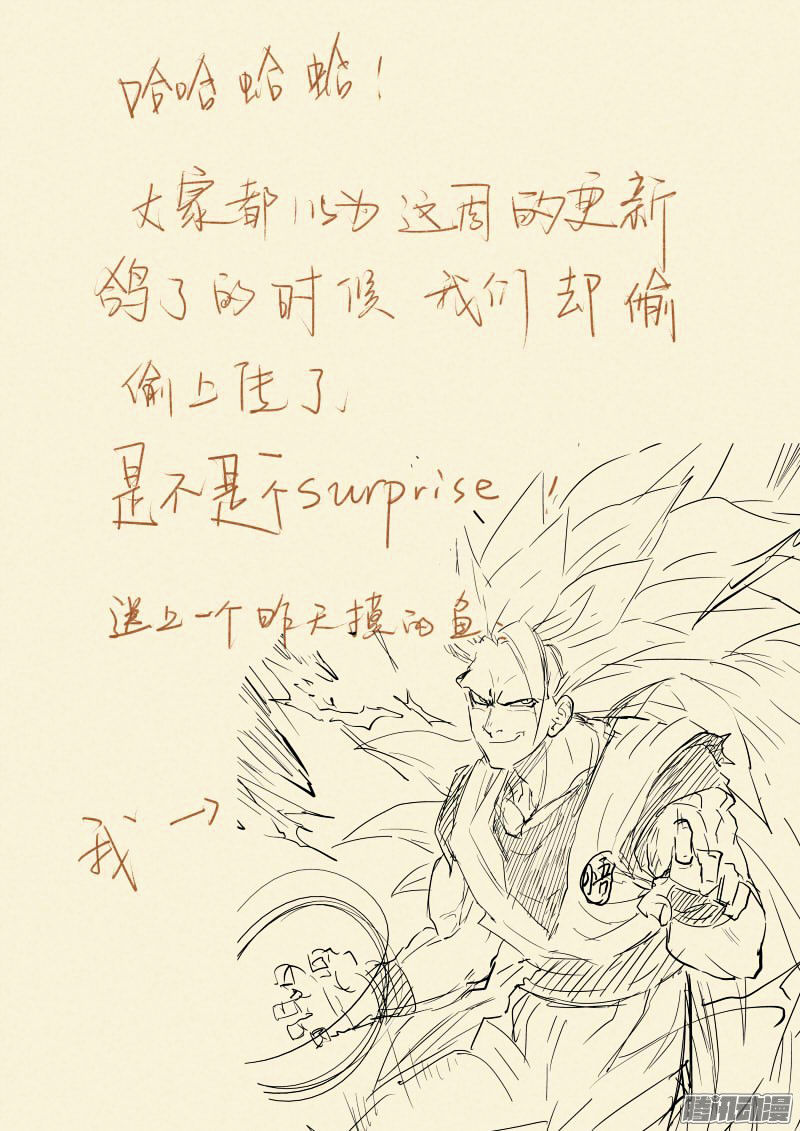 哈哈蛤蛤!
大家都以为这周的更新
鸽了的时候 我们却偷
偷上传了
是不是个surprise !
送上一个昨天摸的鱼、
我→
悟
腾讯动漫